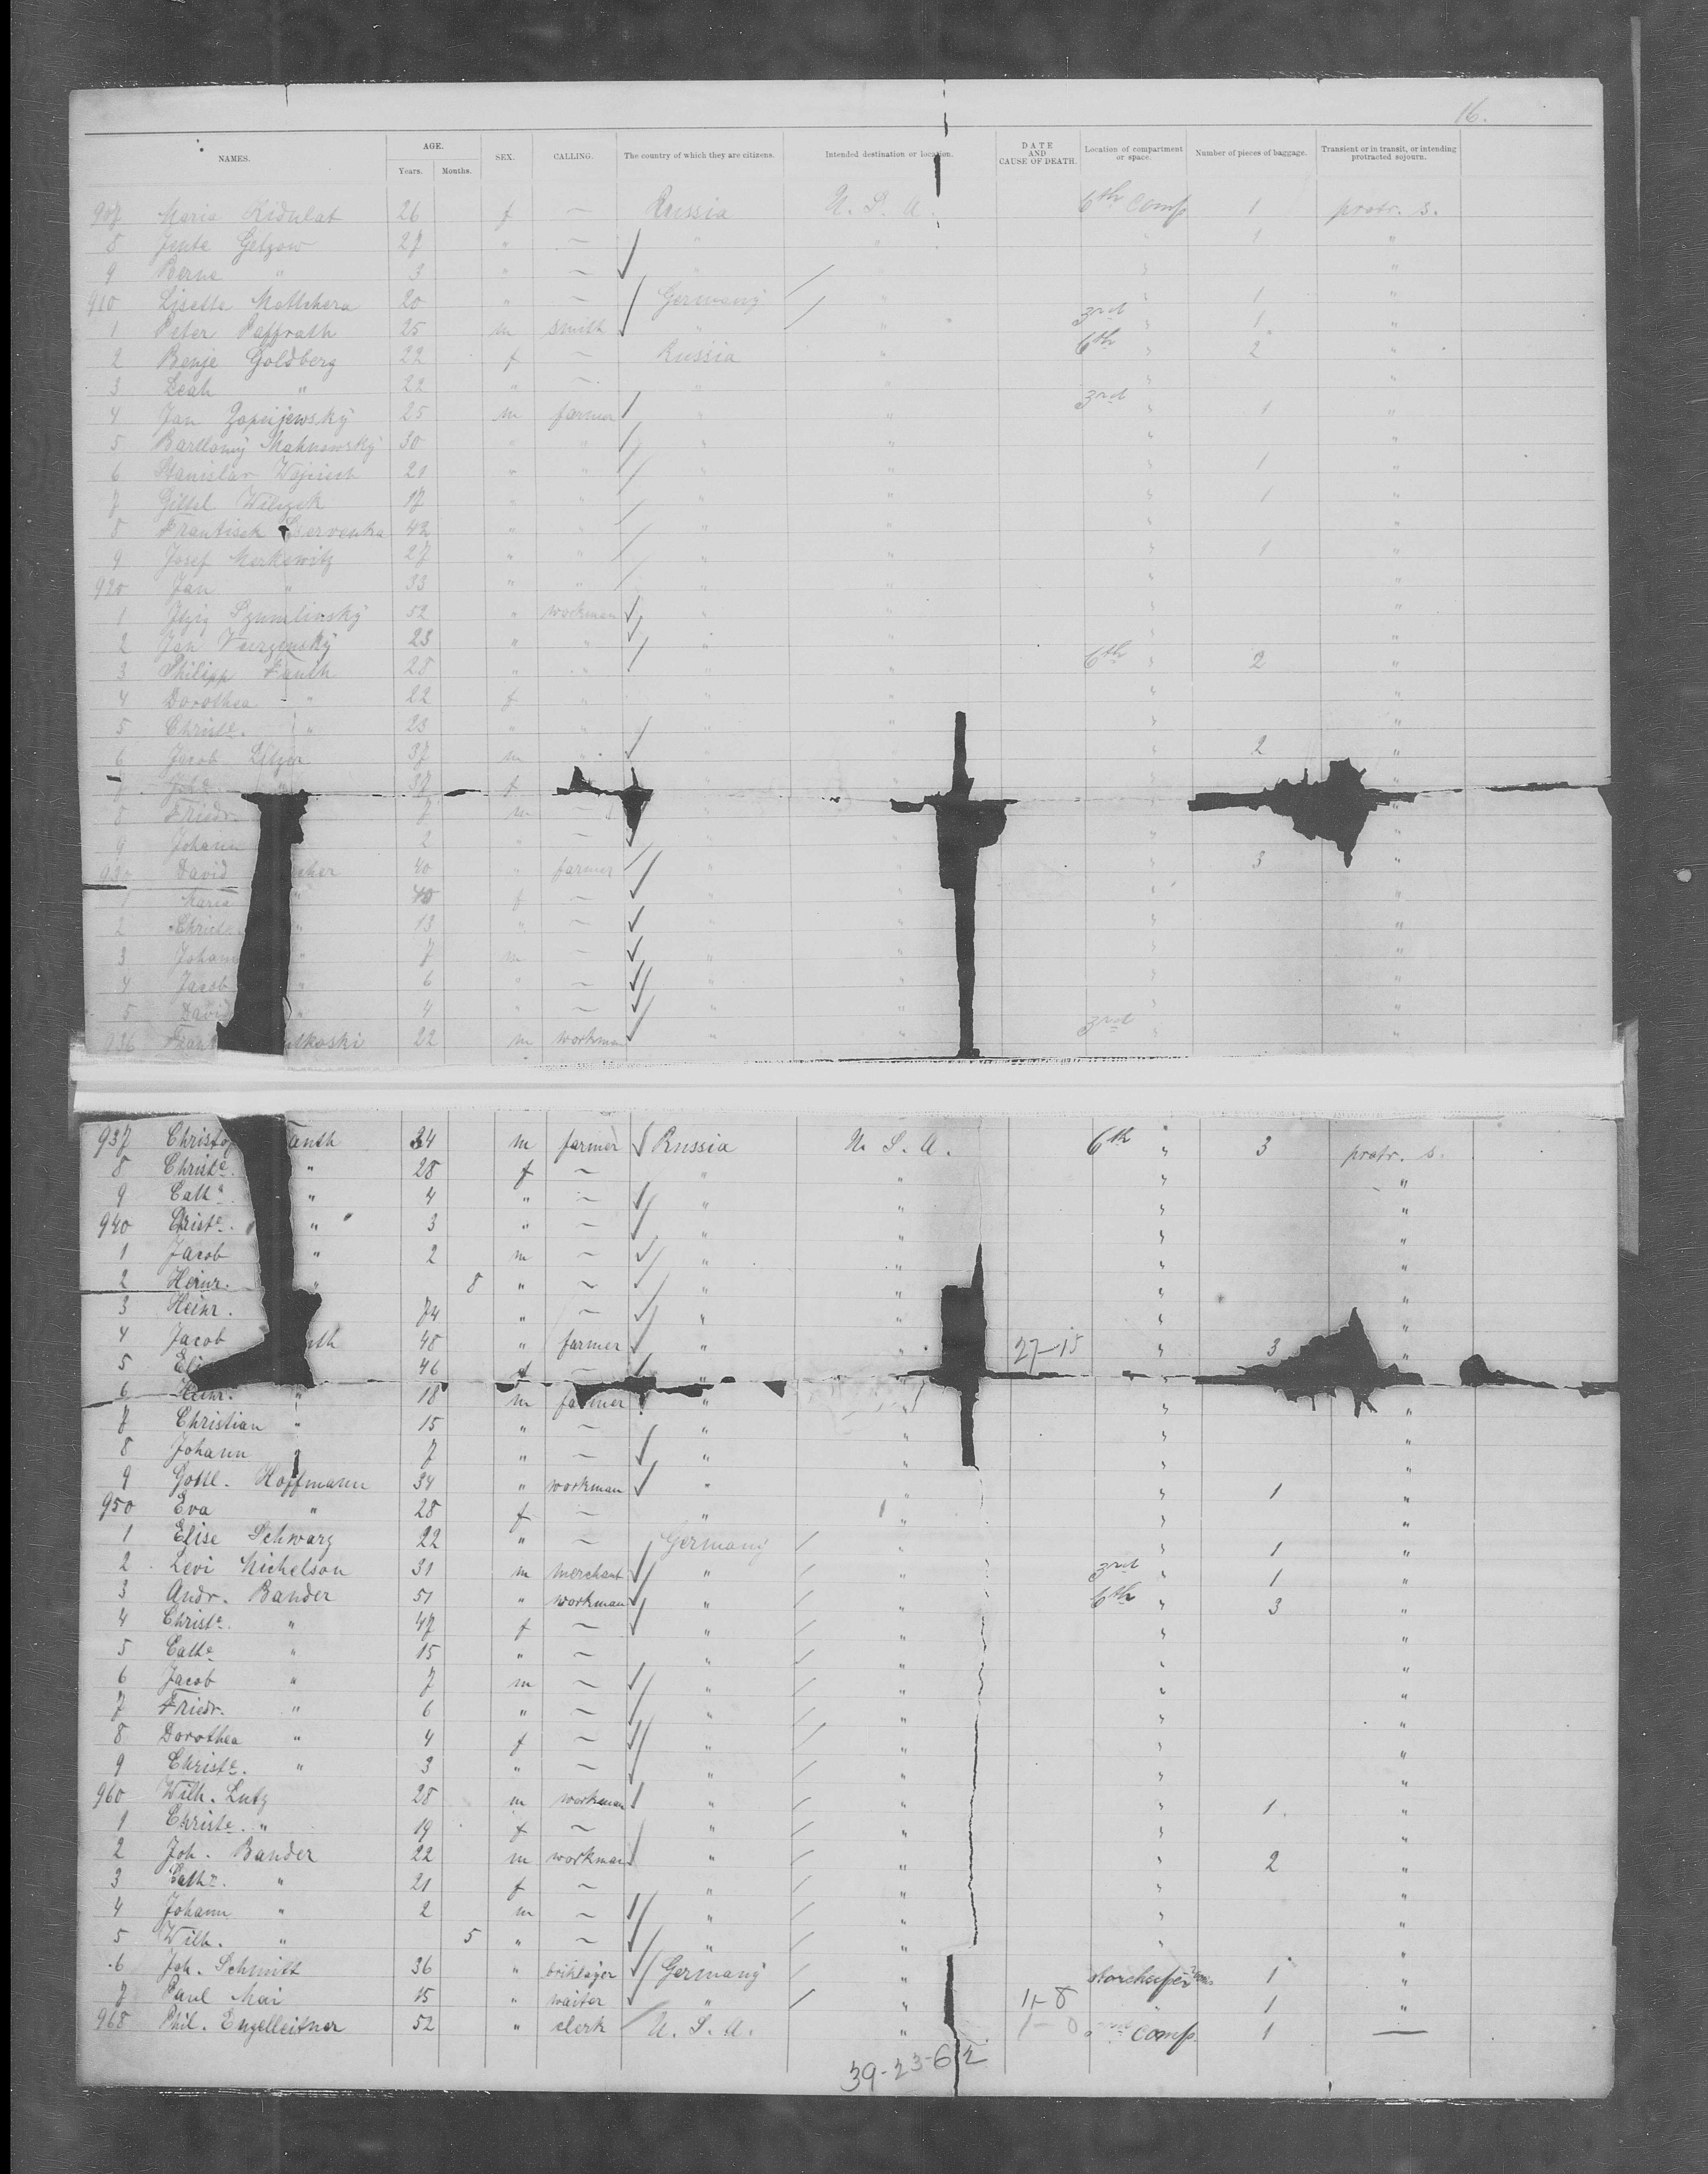 16.
NAMES. AGE. SEX. CALLING. The country of which they are citizens. Intended destination or location. DATE AND CAUSE OF DEATH. Location of compartment or space. Number of pieces of baggage. Transient or in transit, or intending protracted sojourn.
Years. Months.
907 Maria Kidulat 26 f — Russia U. S. A. 6th Comp 1 protr. s.
8 Jente Getzow 27 " — " " " 1 "
9 Berna " 3 " — " " "
910 Lisette 20 " — Germany " " 1 "
1 Peter Paffrath 25 m smith " " 3rd " 1 "
2 Benje Goldberg 22 f — Russia " 6th " 2 "
3 Leah " 22 " — " " " "
4 Jan 25 m farmer " " 3rd " 1 "
5 30 " " " " " "
6 Stanislav 21 " " " " " 1 "
7 Gittel 17 " " " " " 1 "
8 Frantisek Cervenka 42 " " " " " "
9 Josef Merkewitz 27 " " " " " 1 "
920 Jan " 33 " " " " " "
1 Szumlinský 52 " workman " " " "
2 Jan 23 " " " " " "
3 Philipp Fauth 28 " " " " 6th " 2 "
4 Dorothea " 22 f " " " " "
5 Christe. " 23 " " " " " "
6 Jacob 37 m " " " " 2 "
7 37 f " " " "
8 Friedr. 7 m — " "
9 Johann 2 " — " "
930 David cher 40 " farmer " " " 3 "
1 Maria " 40 f — " " " "
2 Christ " 13 " — " " " "
3 Johann " 7 m — " " " "
4 Jacob " 6 " — " " " "
5 David " 4 " — " " " "
936 Frant lkoski 22 m workman " " 3rd " "
937 Christo anth 34 m farmer Russia U. S. A. 6th " 3 protr. s.
8 Christe. " 28 f — " " " "
9 Cath " 4 " — " " " "
940 Christe. " 3 " — " " " "
1 Jacob " 2 m — " " " "
2 Heinr. " 8 " — " " " "
3 Heinr. 74 " — " " " "
4 Jacob uth 48 " farmer " " 27-15 " 3 "
5 Eli 46 f — " "
6 Heinr. " 18 m farmer " " " "
7 Christian " 15 " — " " " "
8 Johann 7 " — " " " "
9 Gottl. Hoffmann 34 " workman " " " 1 "
950 Eva " 28 f — " " " "
1 Elise Schwarz 22 " — Germany " " 1 "
2 Levi Michelson 31 m merchant " " 3rd " 1 "
3 Andr. Bander 51 " workman " " 6th " 3 "
4 Christe. " 47 f — " " " "
5 Cathe " 15 " — " " " "
6 Jacob " 7 m — " " " "
7 Friedr. " 6 " — " " " "
8 Dorothea " 4 f — " " " "
9 Christe. " 3 " — " " " "
960 Wilh. Lutz 28 m workman " " " 1 "
1 Christe. " 19 f — " " " "
2 Joh. Bander 22 m workman " " " 2 "
3 Cathe. " 21 f — " " " "
4 Johann " 2 m — " " " "
5 Wilh. " 5 " — " " " "
6 Joh. Schmitt 36 " briklayer Germany " 1 "
7 Paul Mai 15 " waiter " " 11-8 " 1 "
968 Phil. Engelleitner 52 " clerk U. S. A. " comp 1 —
39-23-612